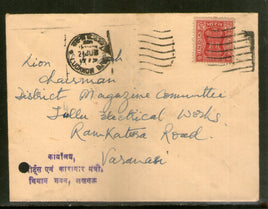 Lion
Chairman
District Magazine Committee
Jullu Electrical Works
Ramkatora Road.
Varanasi
LUCKNOW
21 JUN
कार्यालय,
एवं कारागार मंत्री,
विधान भवन, लखनऊ